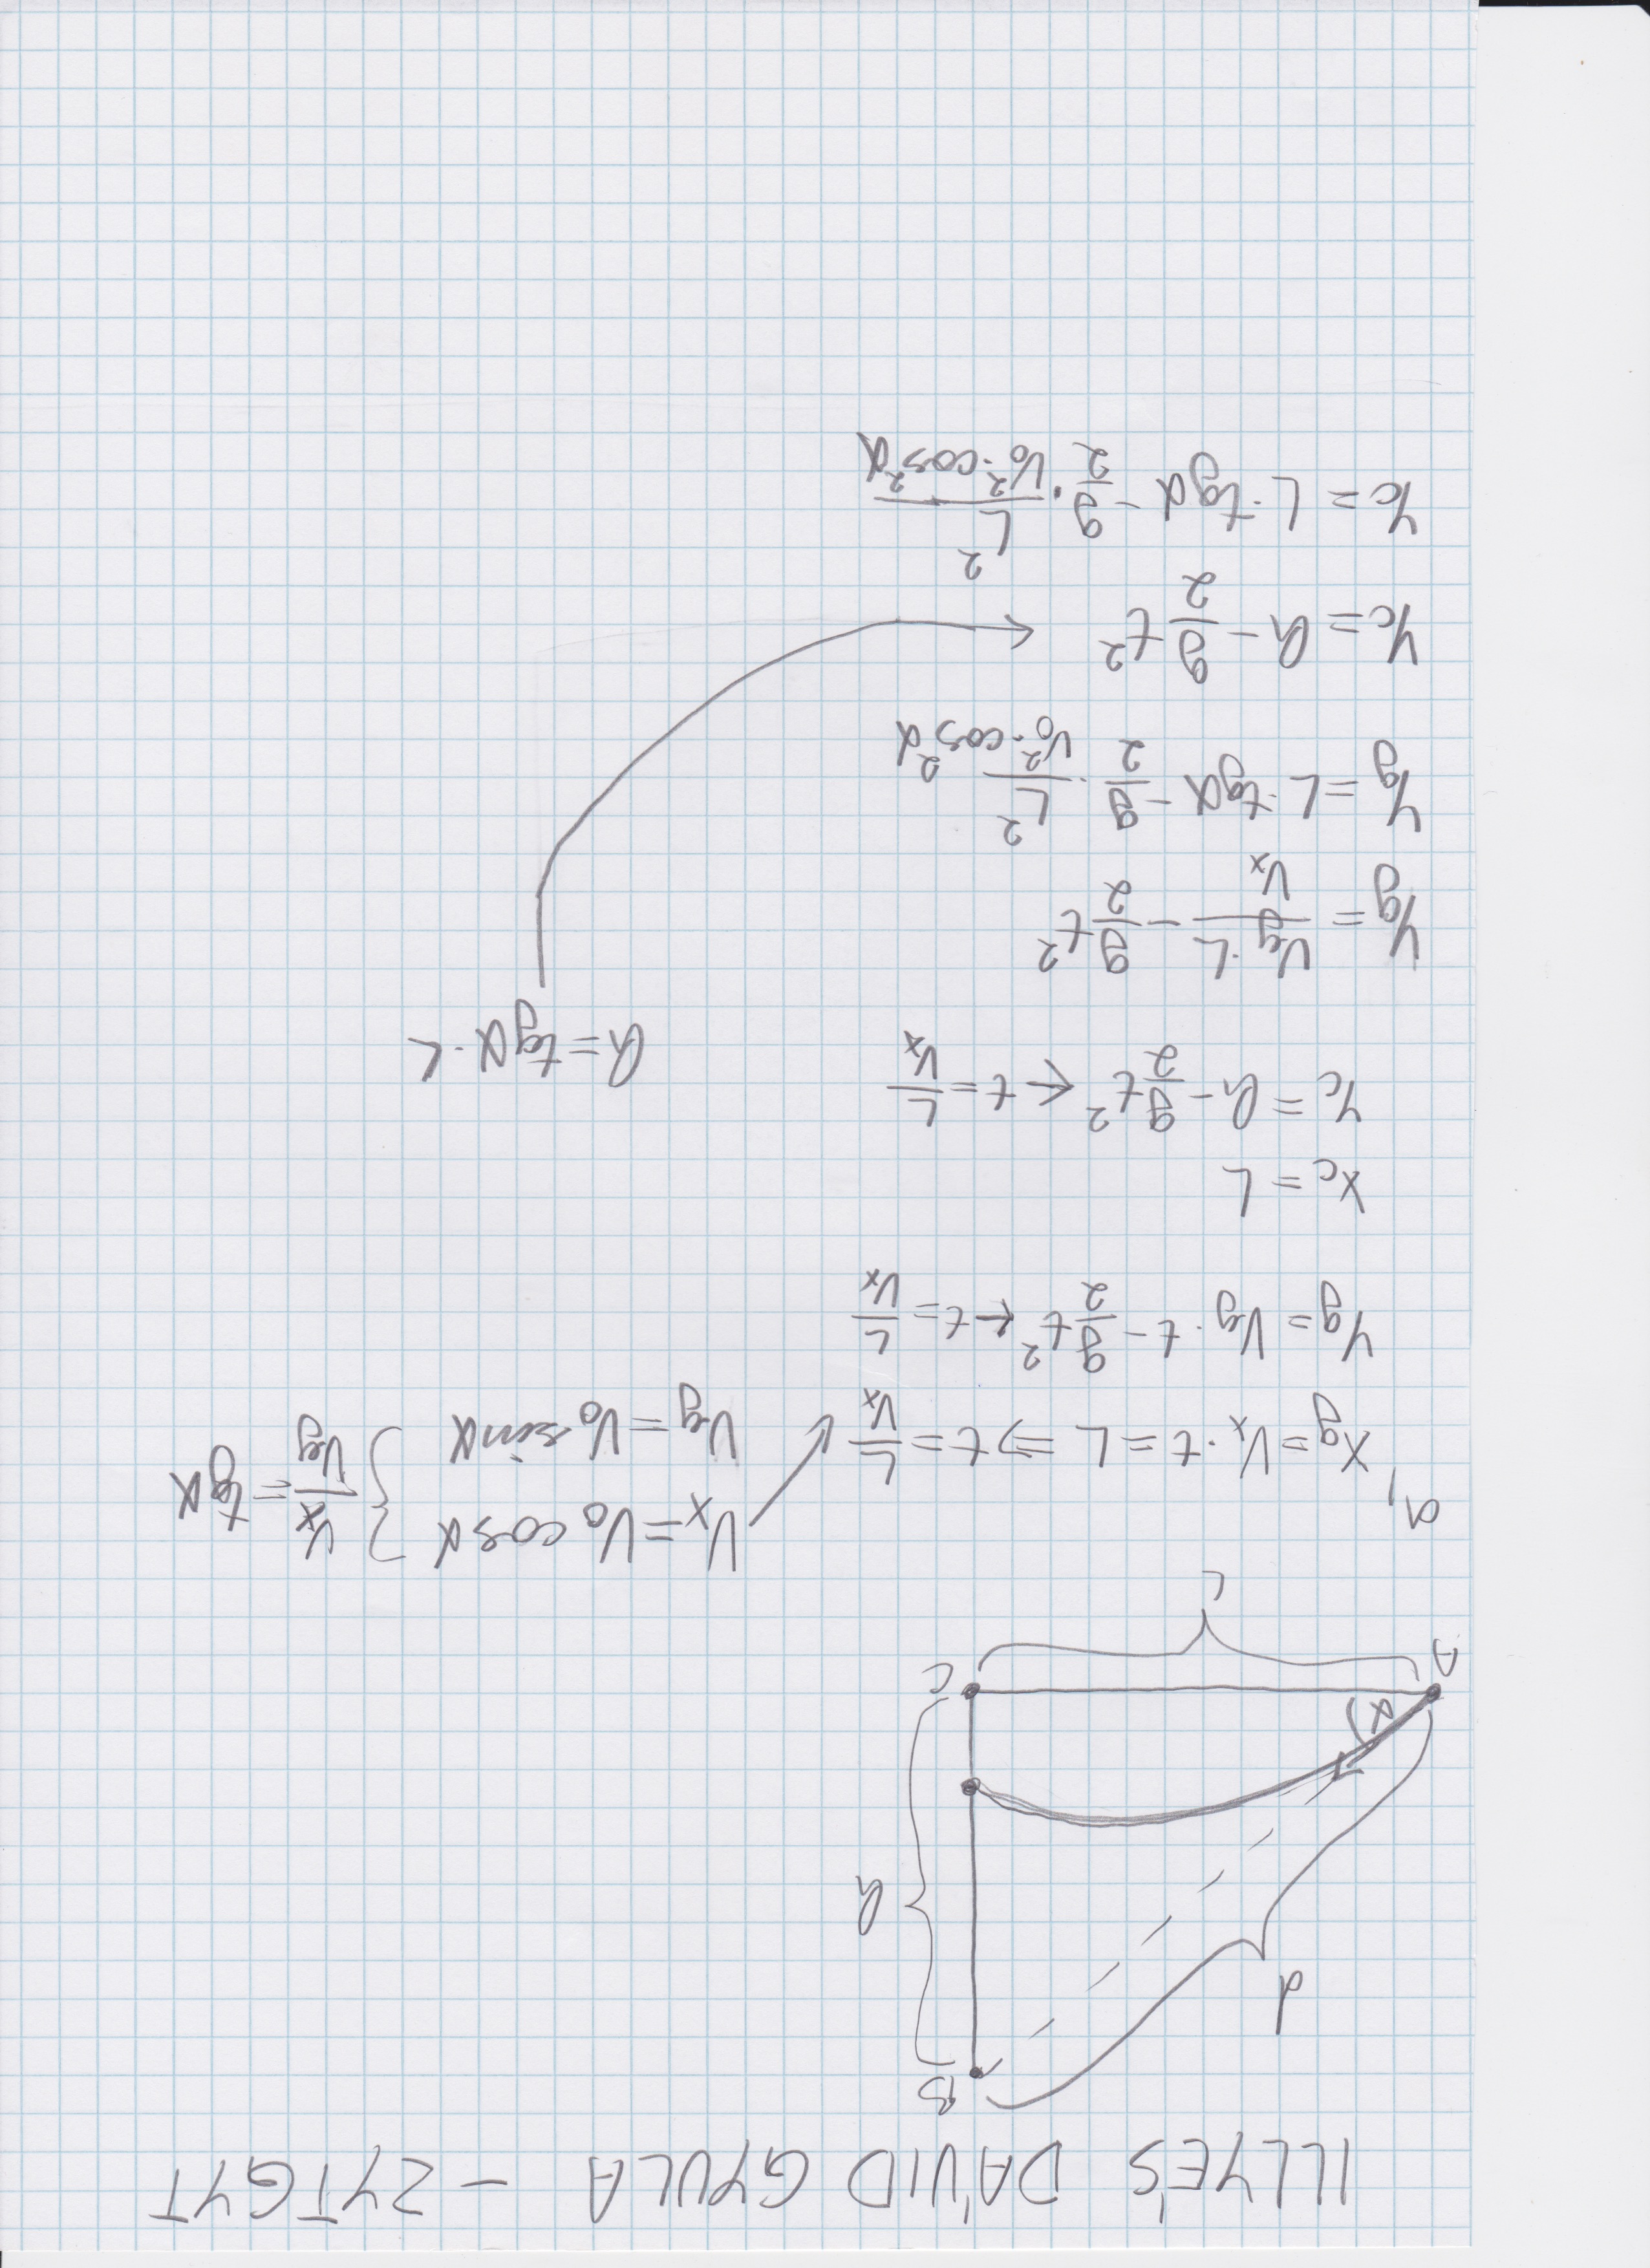 ILLYÉS DÁVID GYULA - ZYTGYT
B
d
h
α
A
C
L
a,
Vx = V₀ cosα
Vy = V₀ sinα
Vx/Vy = tgα
xg = Vx · t = L ⇒ t = L/Vx
yg = Vy · t - g/2 t² ← t = L/Vx
xc = L
yc = h - g/2 t² ← t = L/Vx
h = tgα · L
yg = Vy · L/Vx - g/2 t²
yg = L · tgα - g/2 · L²/V₀² · cos²α
yc = h - g/2 t²
yc = L · tgα - g/2 · L²/V₀² · cos²α